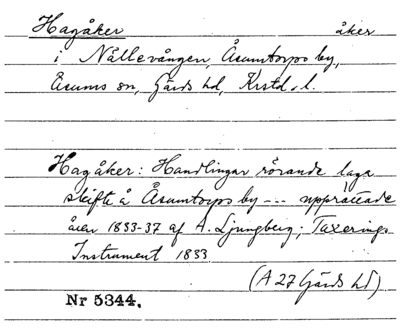 Hagåker åker
i Nällevången, Åsumtorps by,
Åsums sn, Gärds hd, Krstd. l.
Hagåker: Handlingar rörande laga
skifte å Åsumtorps by --- upprättade
åren 1833-37 af A. Ljungberg; Taxerings
Instrument 1833
(A 27 Gärds hd)
Nr 5344.